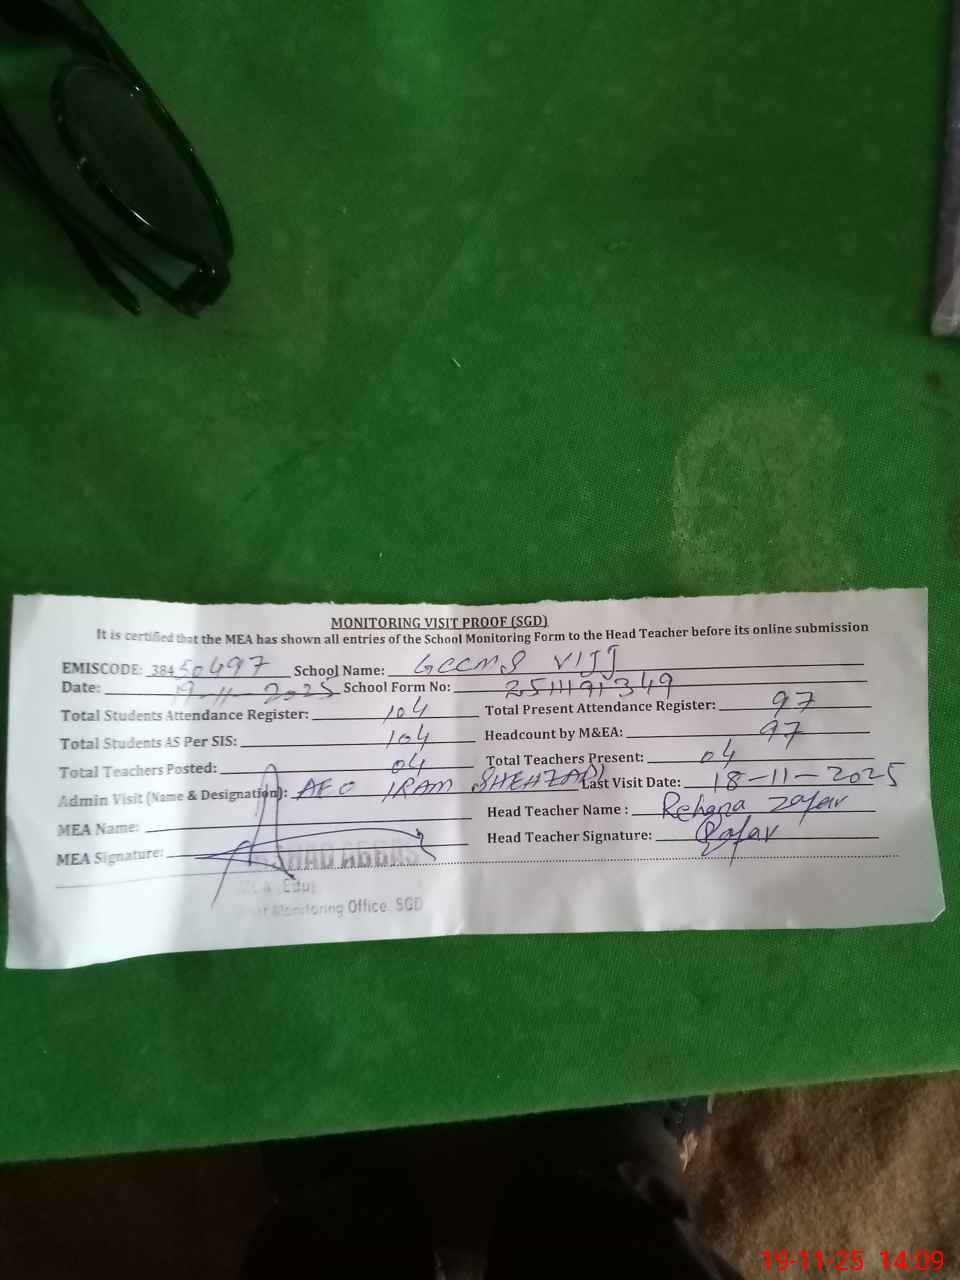 MONITORING VISIT PROOF (SGD)
It is certified that the MEA has shown all entries of the School Monitoring Form to the Head Teacher before its online submission
EMISCODE: 38450497 School Name: GCCMS VIJJ
Date: 19-11-2025 School Form No: 2511191349
Total Students Attendance Register: 104 Total Present Attendance Register: 97
Total Students AS Per SIS: 104 Headcount by M&EA: 97
Total Teachers Posted: 04 Total Teachers Present: 04
Admin Visit (Name & Designation): AEO IRAM SHEHZADI Last Visit Date: 18-11-2025
MEA Name: Head Teacher Name : Rehana Zafar
MEA Signature: Head Teacher Signature: RZafar
ABBAS
(Edu)
Monitoring Office, SGD
19-11-25 14:09